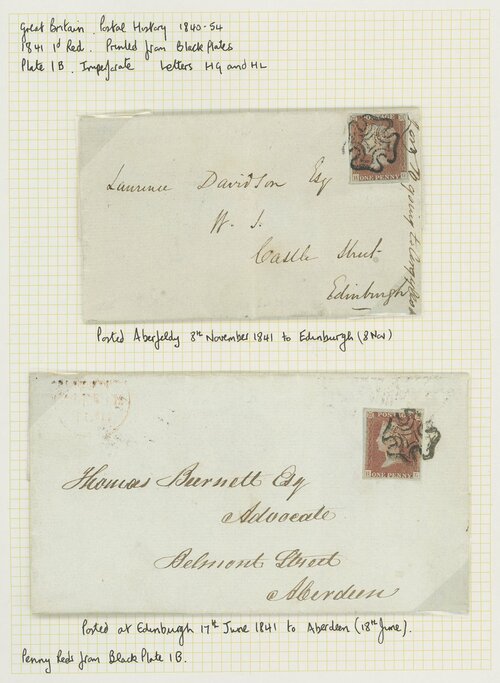 Great Britain. Postal History 1840-54
1841 1d Red. Printed from Black Plates
Plate 1B. Imperforate Letters HG and HL
POSTAGE
ONE PENNY
Laurence Davidson Esq
W. S.
Castle Street
Edinburgh
Posted Aberfeldy 8th November 1841 to Edinburgh (8 Nov)
POSTAGE
H L
ONE PENNY
Thomas Burnett Esq
Advocate
Belmont Street
Aberdeen
Posted at Edinburgh 17th June 1841 to Aberdeen (18th June).
Penny Reds from Black Plate 1B.